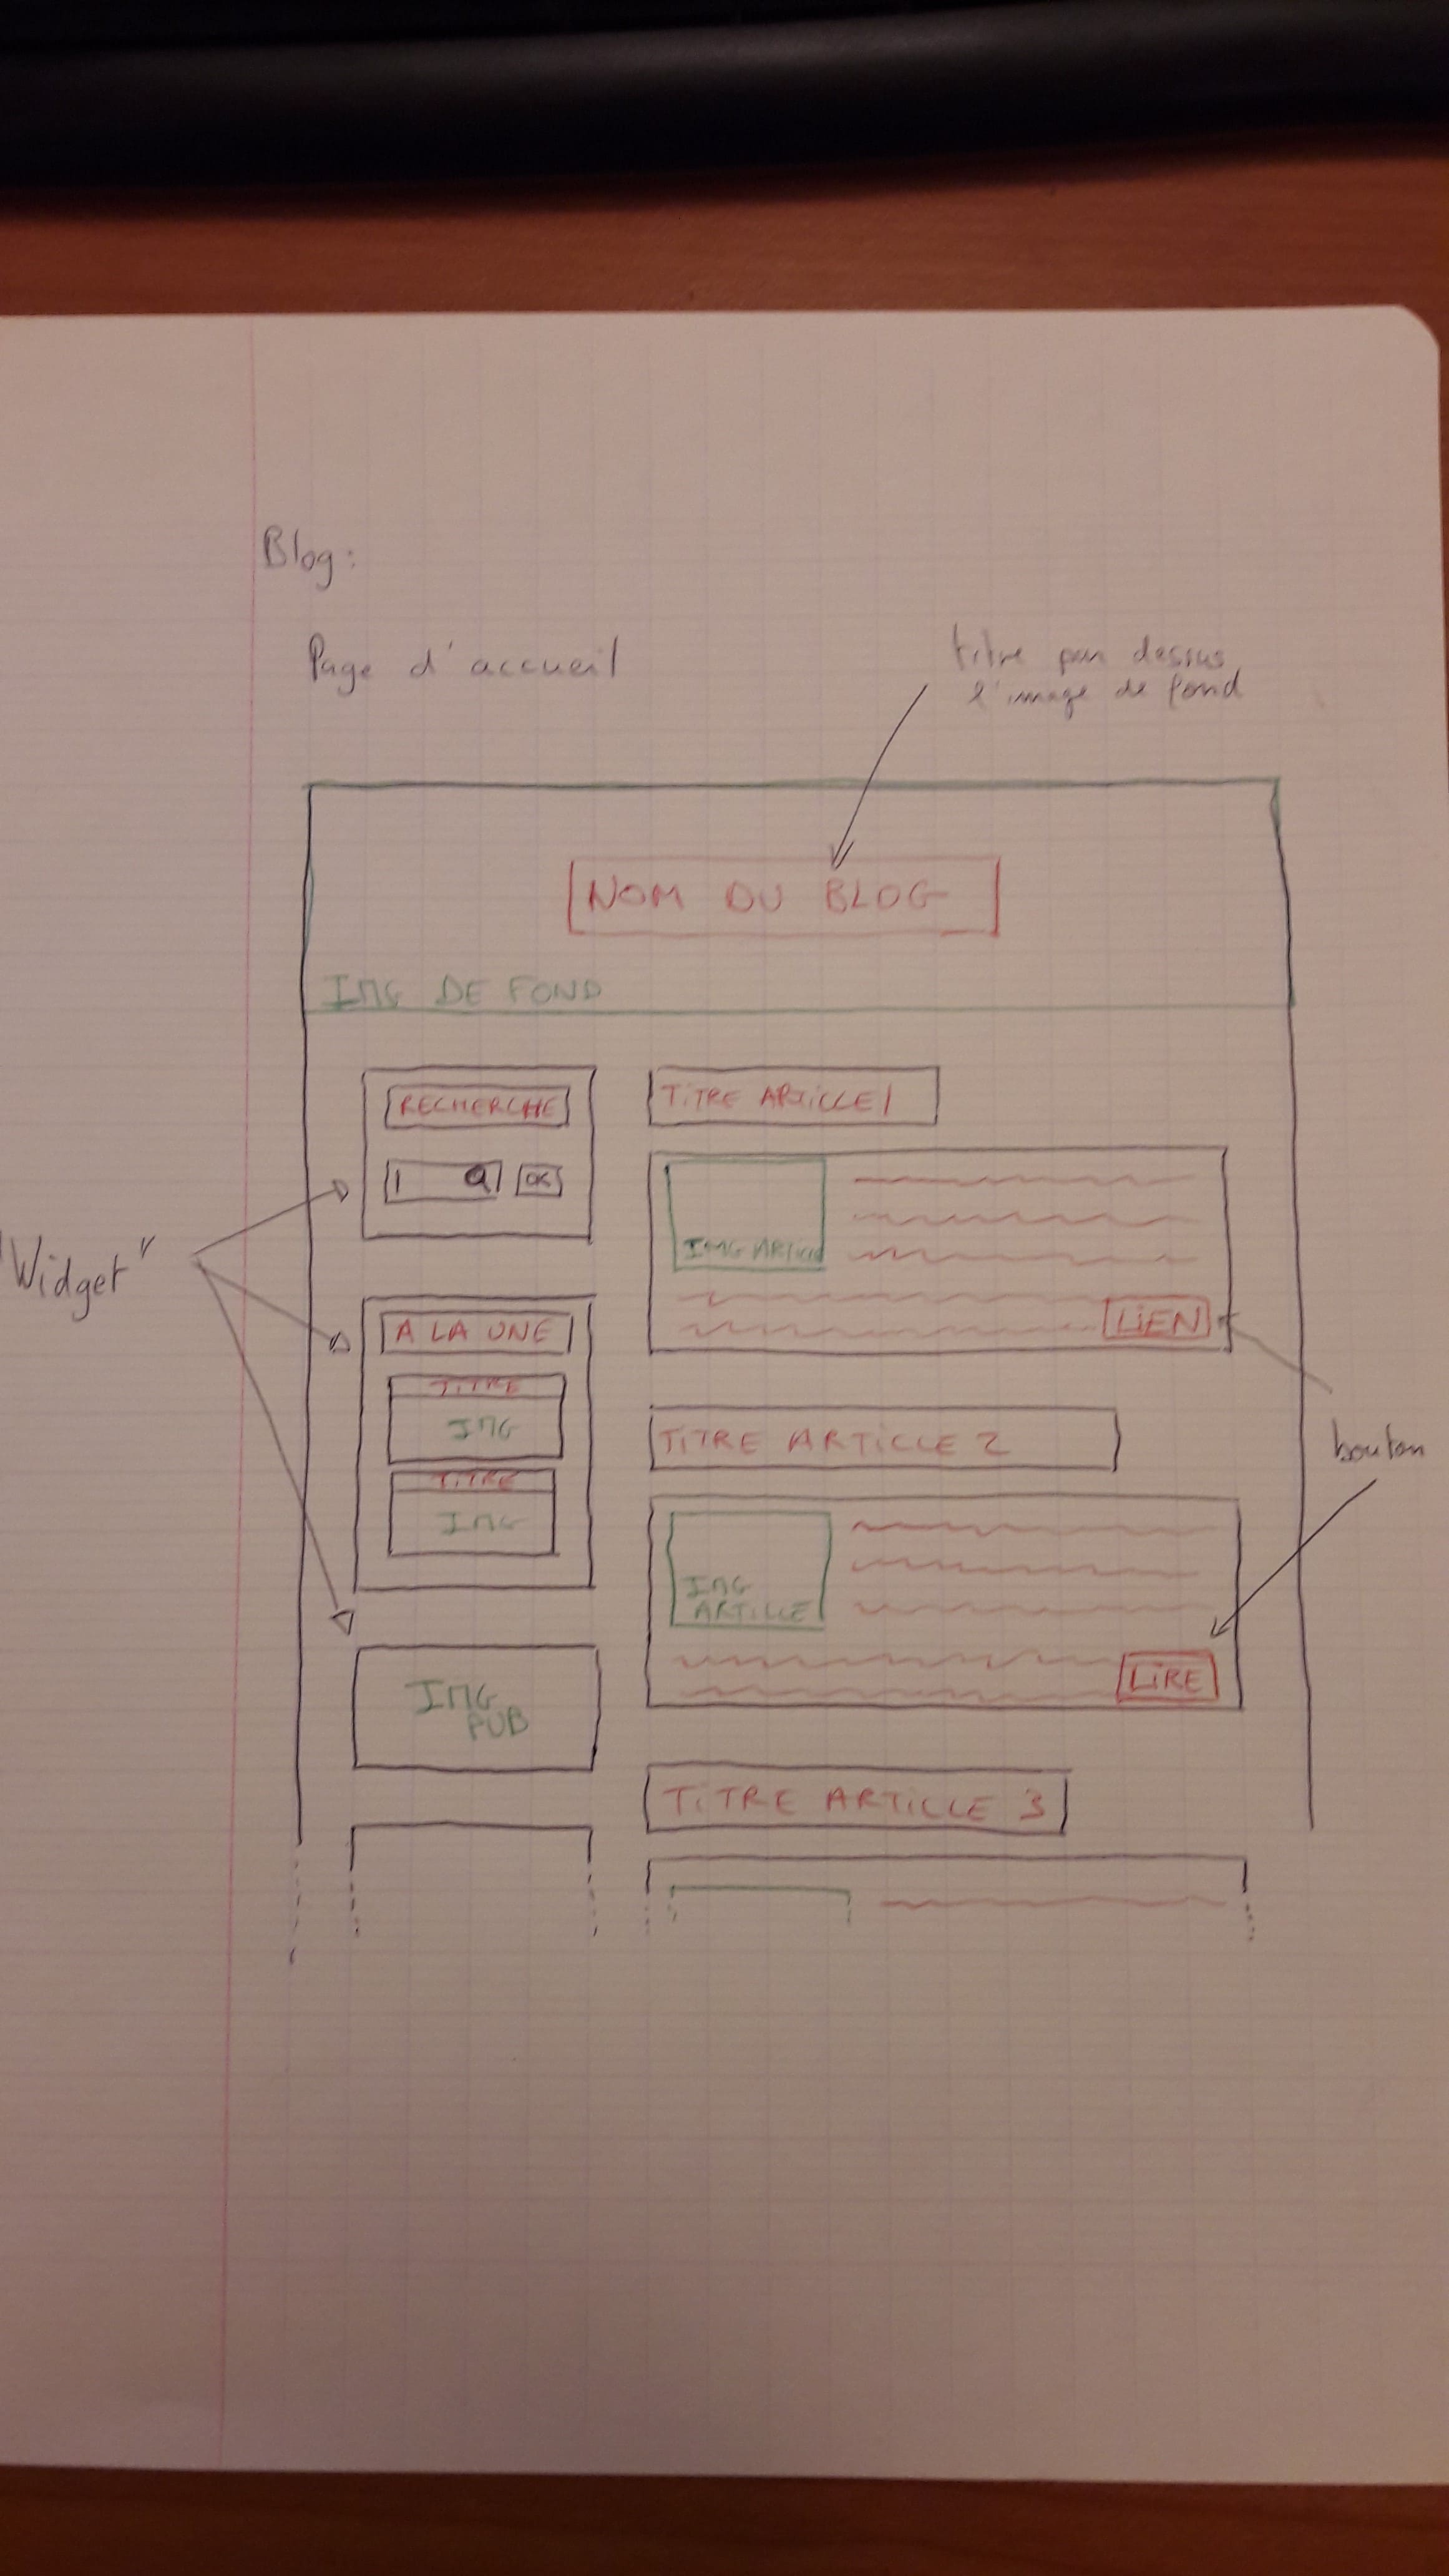 Blog :
Page d'accueil
titre par dessus
l'image de fond
NOM DU BLOG
IMG DE FOND
"Widget"
RECHERCHE
OK
A LA UNE
TITRE
IMG
TITRE
IMG
IMG
PUB
TITRE ARTICLE 1
IMG ARTICLE
LIEN
bouton
TITRE ARTICLE 2
IMG
ARTICLE
LIRE
TITRE ARTICLE 3